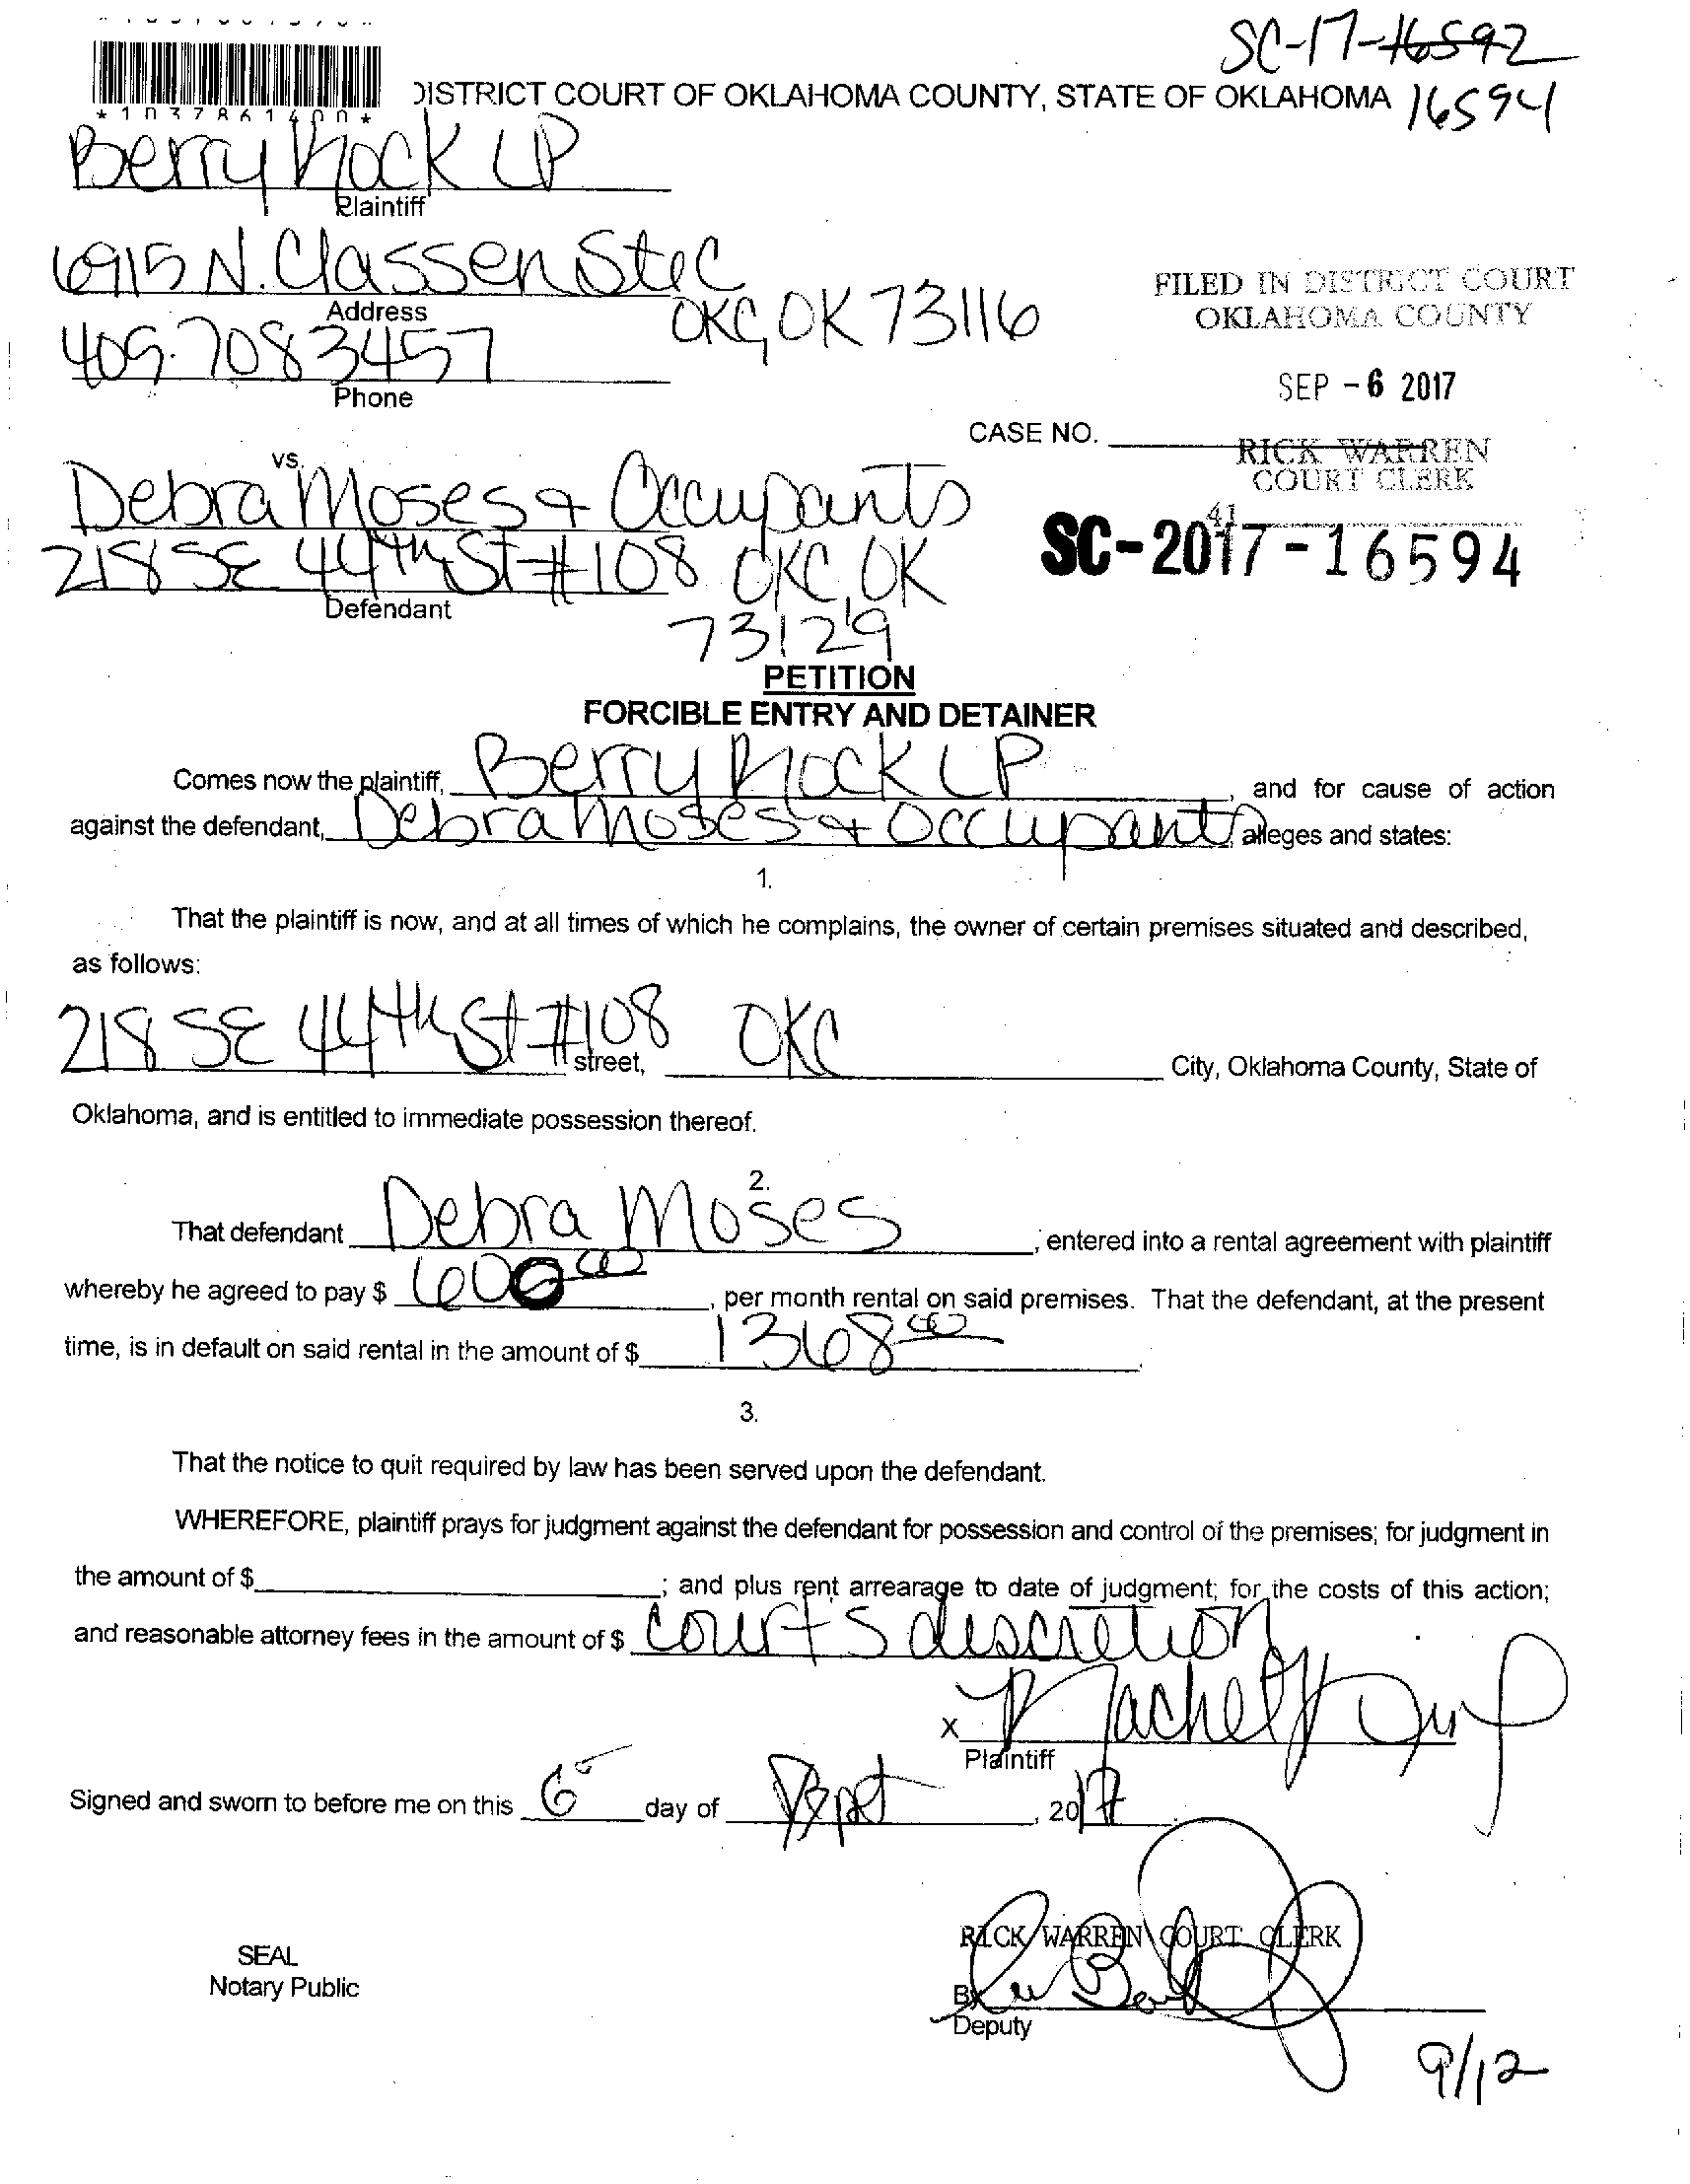 SC-17-16592
16594
*1037861400*
DISTRICT COURT OF OKLAHOMA COUNTY, STATE OF OKLAHOMA
Berry Rock LP
Plaintiff
6915 N. Classen Ste C
Address
OKC, OK 73116
405.708 3457
Phone
FILED IN DISTRICT COURT
OKLAHOMA COUNTY
SEP -6 2017
CASE NO.
RICK WARREN
COURT CLERK
41
vs.
Debra Moses & Occupants
218 SE 44th St #108 OKC, OK
Defendant
73129
SC-2017-16594
PETITION
FORCIBLE ENTRY AND DETAINER
Comes now the plaintiff, Berry Rock LP, and for cause of action
against the defendant, Debra Moses & Occupants, alleges and states:
1.
That the plaintiff is now, and at all times of which he complains, the owner of certain premises situated and described,
as follows:
218 SE 44th St #108 street, OKC City, Oklahoma County, State of
Oklahoma, and is entitled to immediate possession thereof.
2.
That defendant Debra Moses, entered into a rental agreement with plaintiff
whereby he agreed to pay $ 600 00, per month rental on said premises. That the defendant, at the present
time, is in default on said rental in the amount of $ 1368 00.
3.
That the notice to quit required by law has been served upon the defendant.
WHEREFORE, plaintiff prays for judgment against the defendant for possession and control of the premises; for judgment in
the amount of $ ; and plus rent arrearage to date of judgment; for the costs of this action;
and reasonable attorney fees in the amount of $ court's discretion
x Rachel
Plaintiff
Signed and sworn to before me on this 6 day of Sept, 2017
RICK WARREN COURT CLERK
SEAL
Notary Public
By
Deputy
9/12